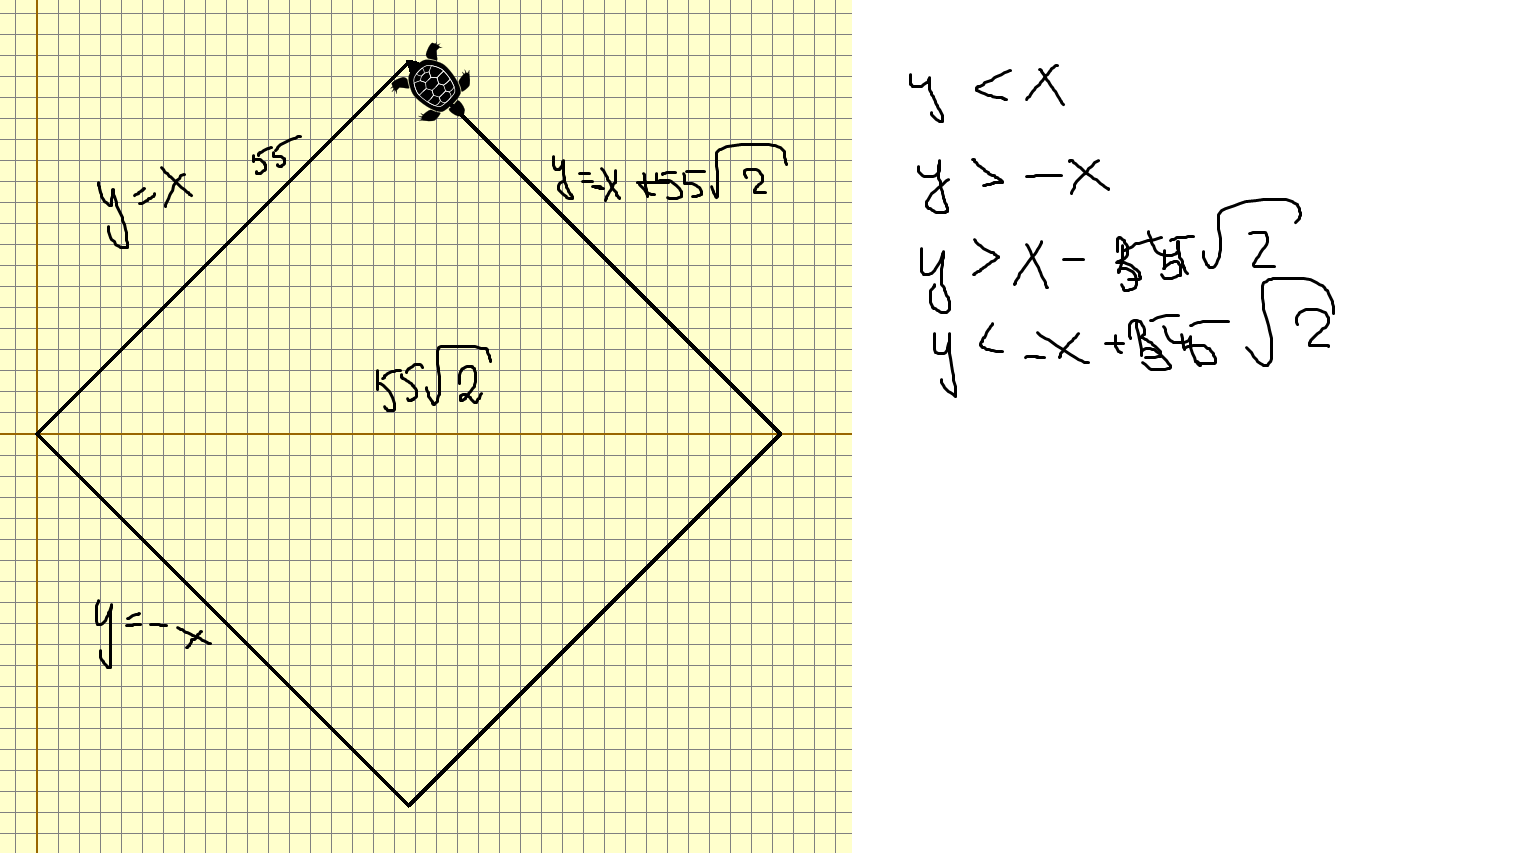 55
y=x
y=-x+55√2
55√2
y=-x
y<x
y>-x
y>x-55√2
y<-x+55√2